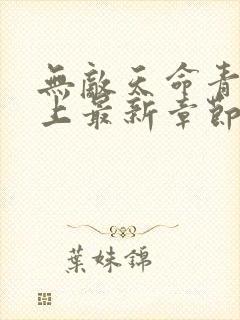 無敵天命青
上最新章節
葉妹錦